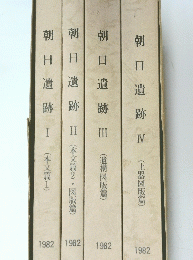 朝日遺跡 I
(本文篇1)
1982
朝日遺跡 II
(本文篇2・図版篇)
1982
朝日遺跡 III
(遺構図版篇)
1982
朝日遺跡 IV
(土器図版篇)
1982